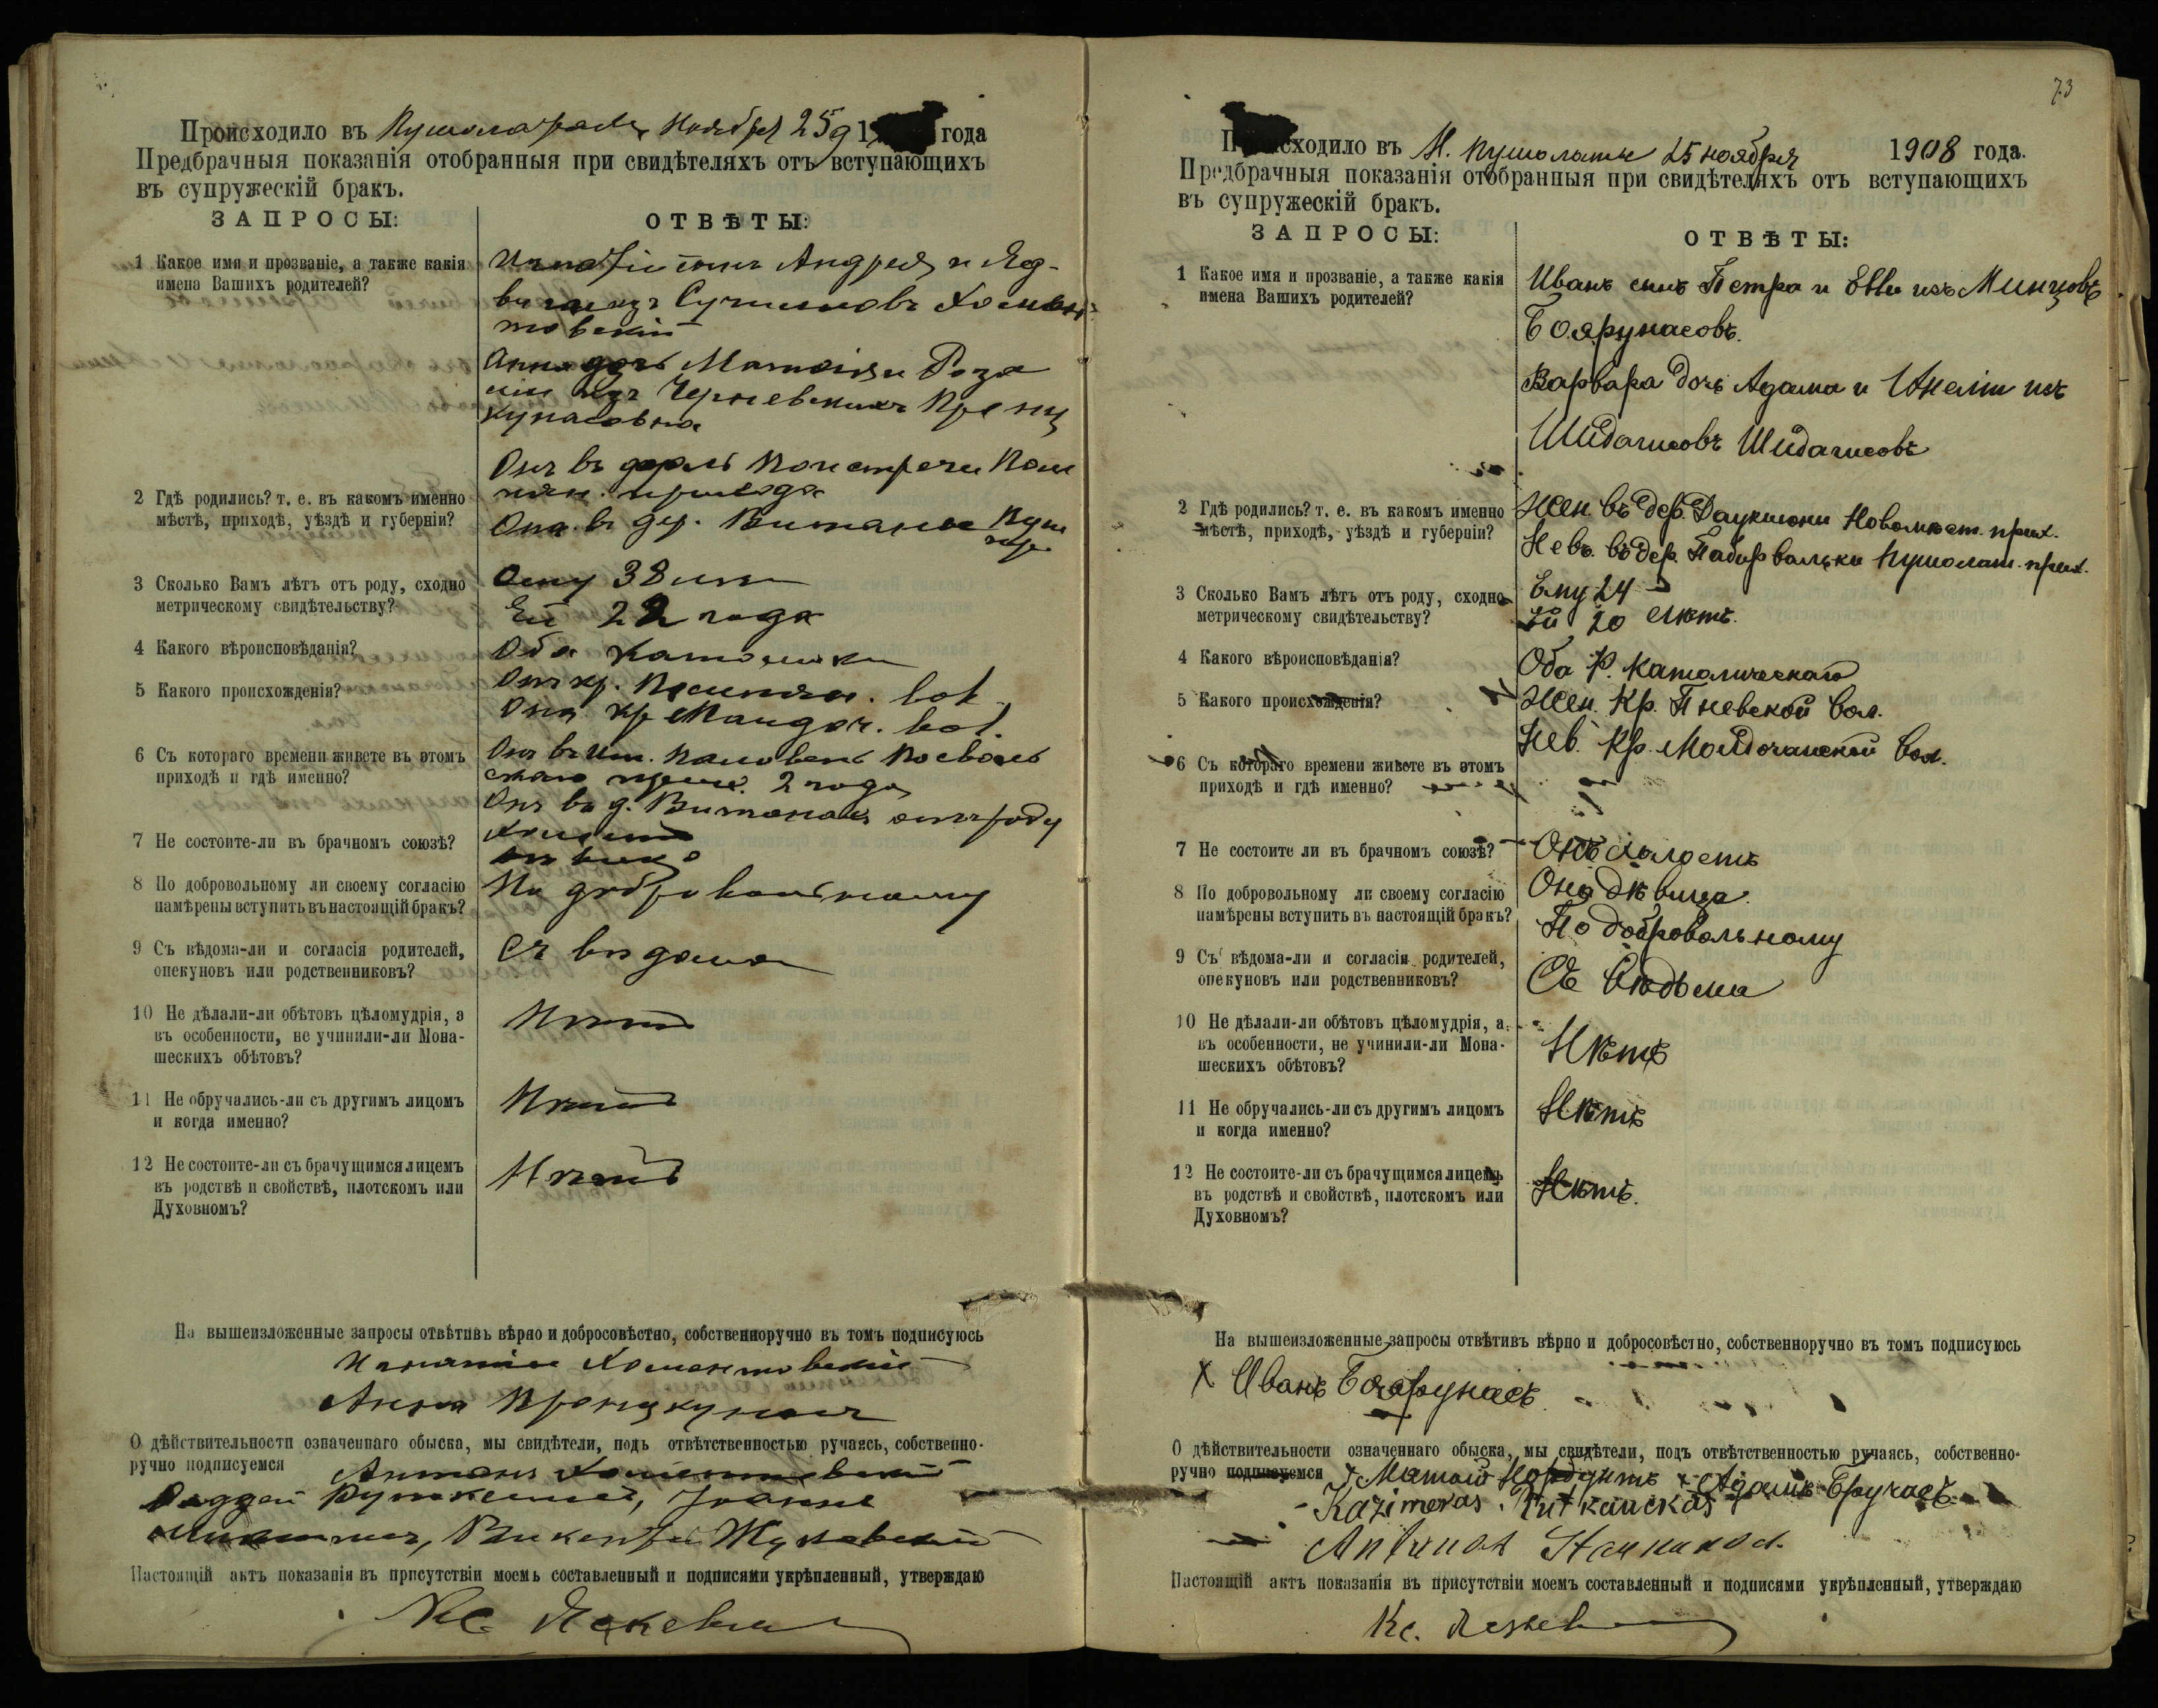 Происходило въ Пушолатахъ Ноября 25 д 1 года
Предбрачныя показанія отобранныя при свидѣтеляхъ отъ вступающихъ
въ супружескій бракъ.
ЗАПРОСЫ:
ОТВѢТЫ:
1 Какое имя и прозваніе, а также какія
имена Вашихъ родителей?
Игнатій сынъ Андрея и Яд-
товскій
Анна дочь Матвія и Роза
ліи изъ Черневскихъ Прениц
кунасовна
2 Гдѣ родились? т. е. въ какомъ именно
мѣстѣ, приходѣ, уѣздѣ и губерніи?
Онъ въ
прихода
Она въ дер. Витаны Пуш
3 Сколько Вамъ лѣтъ отъ роду, сходно
метрическому свидѣтельству?
Ему 38 лѣтъ
Ей 22 года
4 Какого вѣроисповѣданія?
Оба католики
5 Какого происхожденія?
Онъ кр. вол.
Она кр. вол.
6 Съ котораго времени живете въ этомъ
приходѣ и гдѣ именно?
Онъ въ им.
2 года
въ д. отъ роду
7 Не состоите-ли въ брачномъ союзѣ?
8 По добровольному ли своему согласію
намѣрены вступить въ настоящій бракъ?
По добровольному
9 Съ вѣдома-ли и согласія родителей,
опекуновъ или родственниковъ?
Съ вѣдома
10 Не дѣлали-ли обѣтовъ цѣломудрія, а
въ особенности, не учинили-ли Мона-
шескихъ обѣтовъ?
Нѣтъ
11 Не обручались-ли съ другимъ лицомъ
и когда именно?
Нѣтъ
12 Не состоите-ли съ брачущимся лицемъ
въ родствѣ и свойствѣ, плотскомъ или
Духовномъ?
Нѣтъ
На вышеизложенные запросы отвѣтивъ вѣрно и добросовѣстно, собственноручно въ томъ подписуюсь
Игнатій Хоментовскій
Анна
О дѣйствительности означеннаго обыска, мы свидѣтели, подъ отвѣтственностью ручаясь, собственно-
ручно подписуемся Антонъ Хоментовскій
Фаддей
Викентій Жуковскій
Настоящій актъ показанія въ присутствіи моемъ составленный и подписями укрѣпленный, утверждаю
Кс.
73
Происходило въ М. Пушолаты 25 ноября 1908 года.
Предбрачныя показанія отобранныя при свидѣтеляхъ отъ вступающихъ
въ супружескій бракъ.
ЗАПРОСЫ:
ОТВѢТЫ:
1 Какое имя и прозваніе, а также какія
имена Вашихъ родителей?
Иванъ сынъ Петра и Еввы изъ Минцовъ
Боярунасовъ.
Варвара дочь Адама и Анеліи изъ
Шидагисовъ Шидагисовъ
2 Гдѣ родились? т. е. въ какомъ именно
мѣстѣ, приходѣ, уѣздѣ и губерніи?
Жен. въ дер. Даукшюни Новомѣст. прих.
Нев. въ дер. Пушолат. прих.
3 Сколько Вамъ лѣтъ отъ роду, сходно
метрическому свидѣтельству?
Ему 24
Ей 20 лѣтъ.
4 Какого вѣроисповѣданія?
Оба Р. Католическаго
5 Какого происхожденія?
Жен. Кр. Пневской вол.
Нев. Кр. вол.
6 Съ котораго времени живете въ этомъ
приходѣ и гдѣ именно?
7 Не состоите ли въ брачномъ союзѣ?
Онъ холостъ
Она дѣвица.
8 По добровольному ли своему согласію
намѣрены вступить въ настоящій бракъ?
По добровольному
9 Съ вѣдома-ли и согласія родителей,
опекуновъ или родственниковъ?
Съ Вѣдома
10 Не дѣлали-ли обѣтовъ цѣломудрія, а
въ особенности, не учинили-ли Мона-
шескихъ обѣтовъ?
Нѣтъ
11 Не обручались-ли съ другимъ лицомъ
и когда именно?
Нѣтъ
12 Не состоите-ли съ брачущимся лицемъ
въ родствѣ и свойствѣ, плотскомъ или
Духовномъ?
Нѣтъ.
На вышеизложенные запросы отвѣтивъ вѣрно и добросовѣстно, собственноручно въ томъ подписуюсь
X Иванъ Боярунасъ.
О дѣйствительности означеннаго обыска, мы свидѣтели, подъ отвѣтственностью ручаясь, собственно-
ручно подписуемся Адамъ
Kazimeras Rutkauckas
Antunas
Настоящій актъ показанія въ присутствіи моемъ составленный и подписями укрѣпленный, утверждаю
Кс.